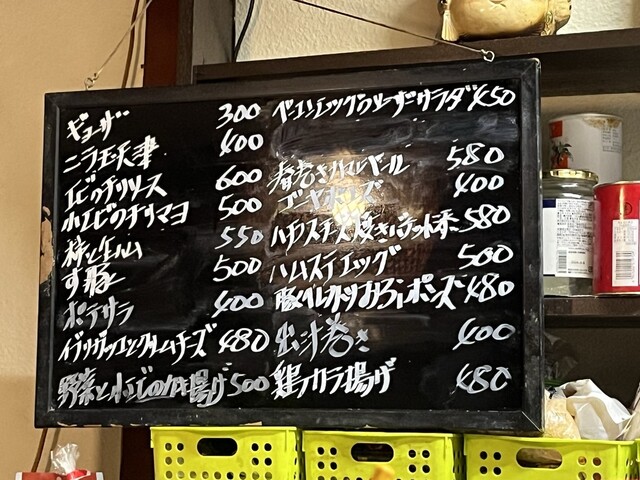 ギョーザ 300
ニラ玉天津 400
エビのチリソース 600
小エビのチリマヨ 500
柿と生ハム 550
す豚 500
ポテサラ 400
イブリガッコとクリームチーズ 480
野菜と小エビのかき揚げ 500
ベーコンエッグシーザーサラダ 450
春巻き 580
ゴーヤ 400
ハムチーズ焼き 580
ハムステエッグ 500
豚ヘレカツおろしポンズ 480
出汁巻き 400
鶏カラ揚げ 480